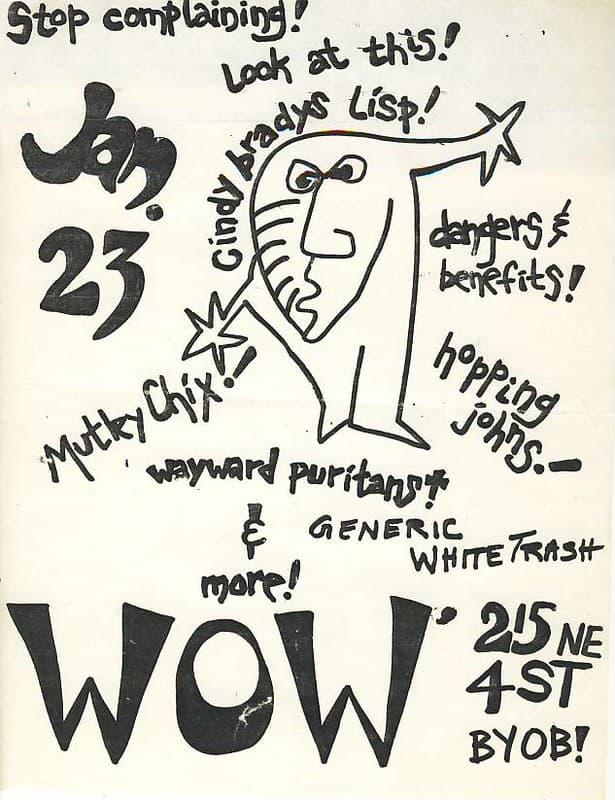 Stop complaining!
Look at this!
Cindy bradys Lisp!
Jan.
23
dangers &
benefits!
hopping
johns.—
Mutky Chix!!
wayward puritans!*
&
more!
GENERIC
WHITE TRASH
WOW
215 NE
4 ST
BYOB!